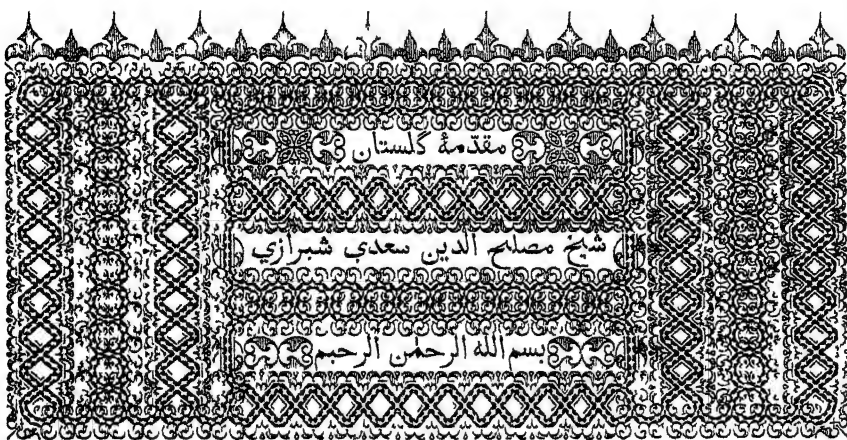 مقدّمهٔ گلستان
شیخ مصلح الدین سعدی شیرازی
بسم الله الرحمٰن الرحیم